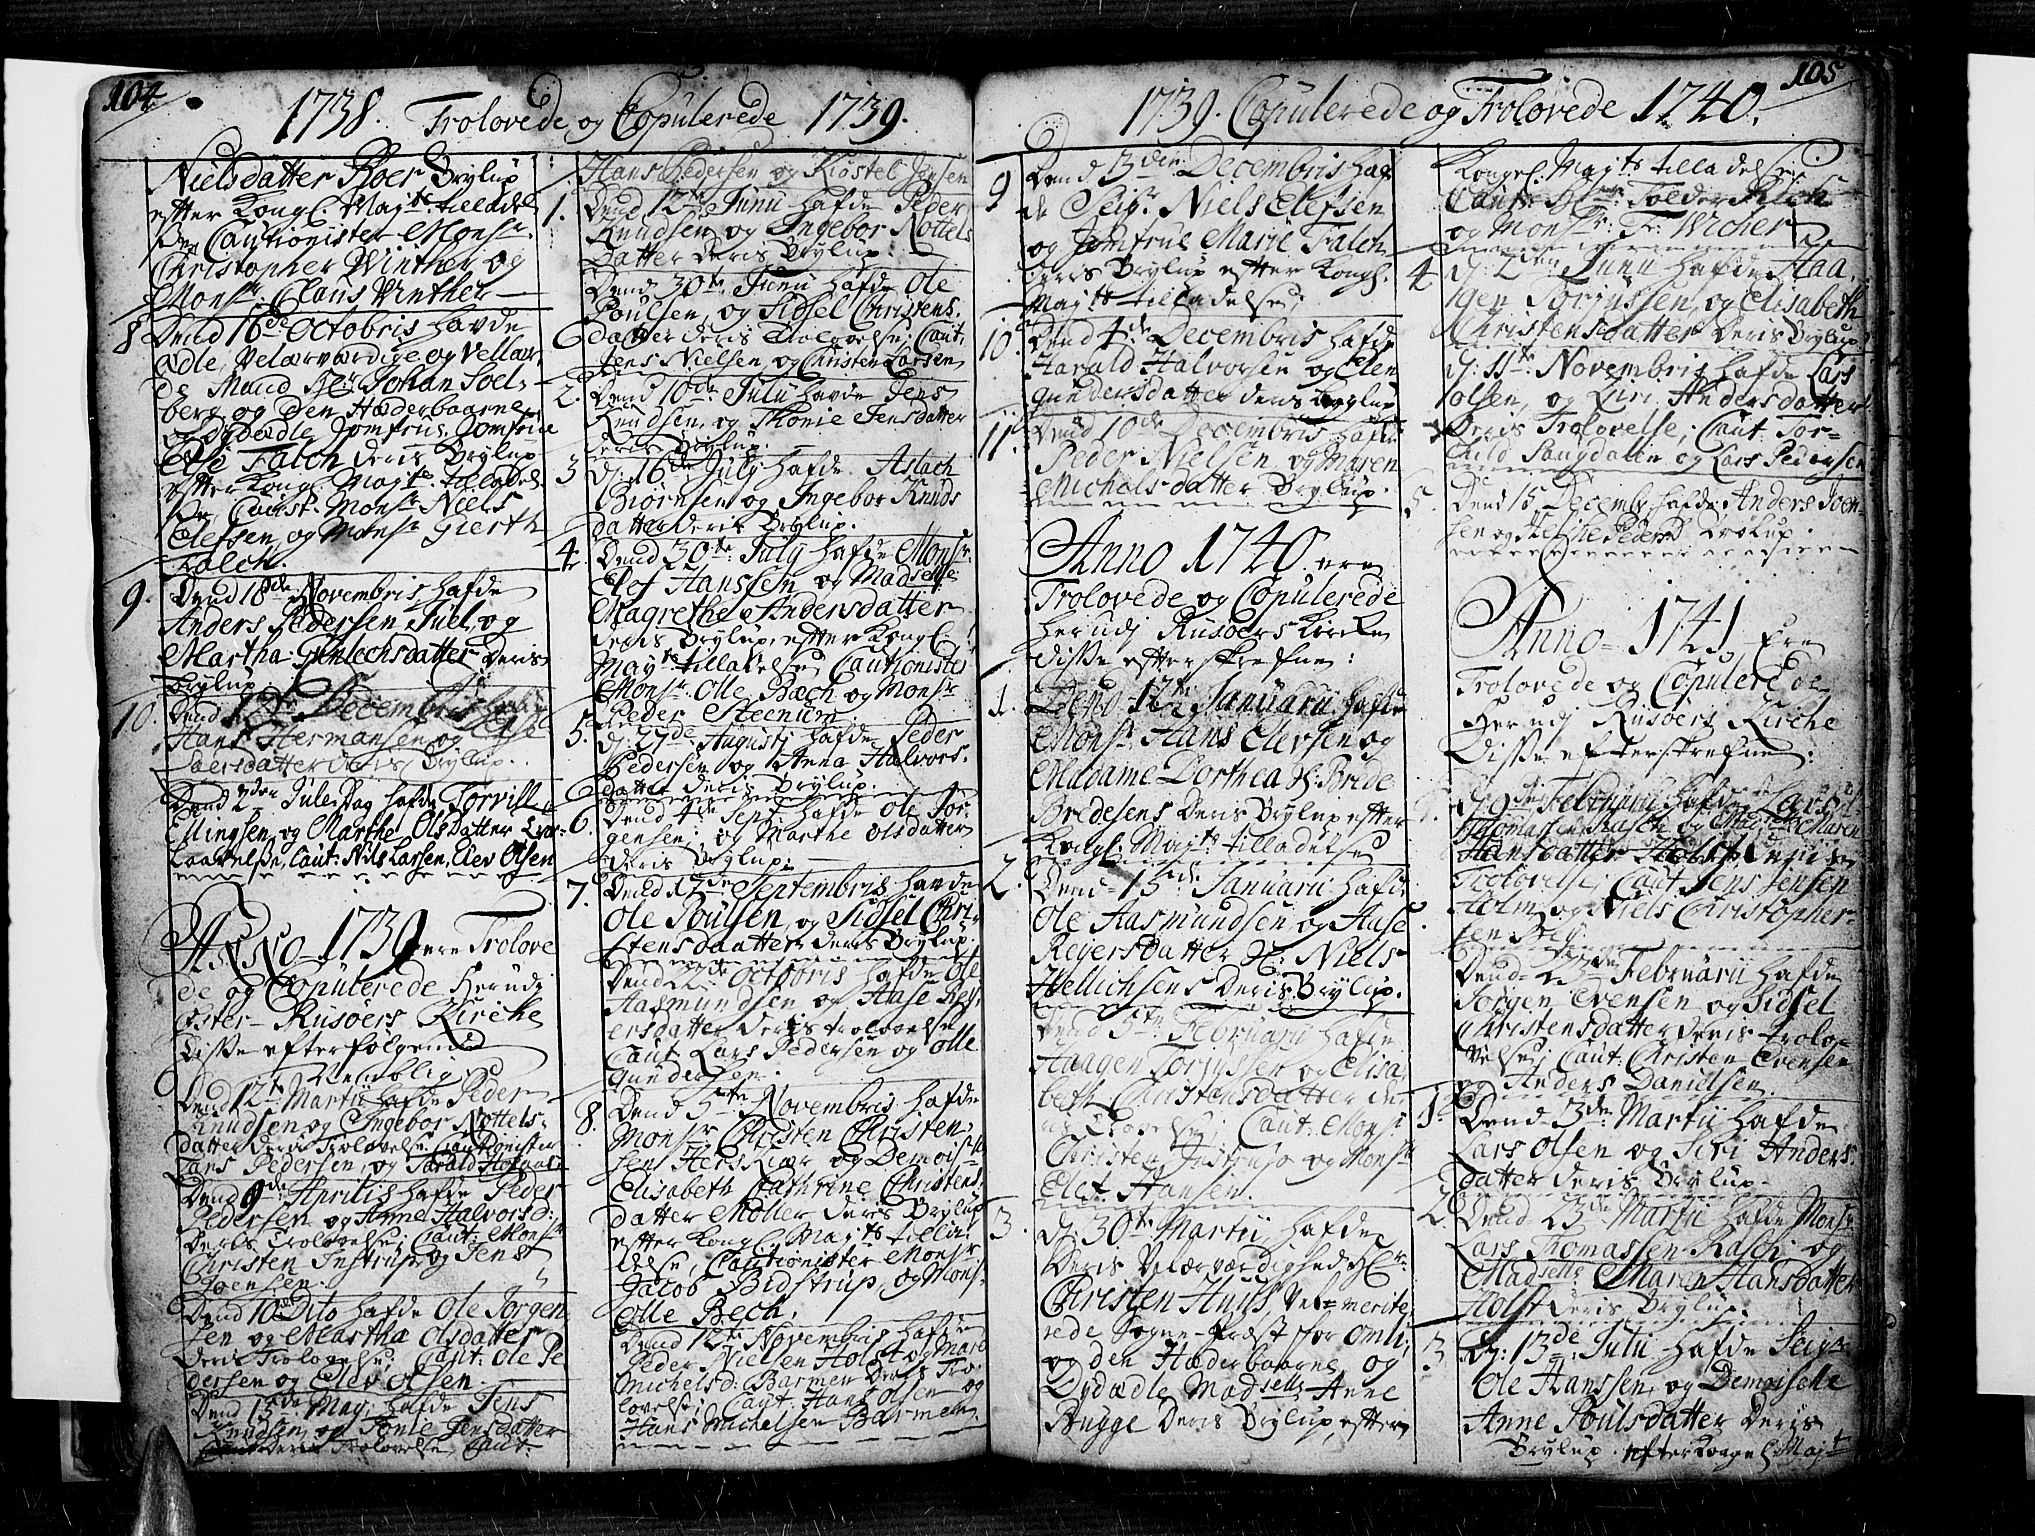 104
1738. Trolovede og Copulerede 1739.
Nielsdatter Roer Brylup
efter Kongl. Majts tilladel
se, Cautionister Monsr
Christopher Winther og
Monsr Claus Winther
8 Dend 16de Octobris havde
ædle, Velærværdige og Vellær
de Mand Her Johan Soel-
berg og den Hæderbaarne
og Dydædle Jomfrue, Jomfrue
Else Falch deris Brylup
efter Kongl. Majts tilladel
se, Caust. Monsr Niels
Elefsen, og Monsr Gierth
Falch.
9. Dend 18de Novembris hafde
Anders Pedersen Juel, og
Martha Gunlechsdatter Deris
Brylup.
10. Dend Decembris hafde
Hans Hermansen og
deris Brylup.
Dend 2der Jule Dag hafde Torvill
Ellingsen og Marthe Olsdatter Trov-
Laavelse, Caut: Nils Larsen, Elev Olsen
Anno 1739 ere Trolove
de og Copulerede Herudj
Øster-Rusøers Kirche
Disse efterfølgende
Nemblig:
Dend 12te Martii hafde Peder
Knudsen og Ingebor Nottels-
datter deris Trolovelse, Cautionister
Hans Pedersen, og Harald
Dend 9de Aprilis hafde Peder
Pedersen og Anne Halvorsd:
Deris Trolovelse, Caut: Monsr
Christen Instrup og Jens
Joensen.
Dend 10de Dito hafde Ole Jorgen
sen og Martha Olsdatter
deris Trolovelse, Caut: Ole Pe
dersen og Elev Olsen.
Dend 15de May hafde Jens
Knudsen, og Tonie Jensdatter
Deris Trolovelse, Caut:
Hans Pedersen og Kiøstel Jensen
1. Dend 12te Junii hafde Peder
Knudsen, og Ingebor Nottels
Datter Deris Brylup.
Dend 30te Junii hafde Ole
Poulsen, og Sidsel Christens-
datter deris Trolovelse, Caut.
Jens Nielsen og Christen Larsen
2. Dend 10de Julii havde Jens
Knudsen, og Thonie Jensdatter
deris Brylup.
3 D: 16de July hafde Aslach
Biørnsen og Ingebor Knuds
datter deris Brylup.
4. Dend 30te July hafde Monsr
Elof Hanssen og Madselle
Magrethe Andersdatter
deris Brylup, efter Kongl.
Mayts tilladelse, Cautionister
Monsr Olle Bech og Monsr
Peder Steenum
5. D: 27de Augusti hafde Peder
Pedersen og Anna Halvors-
datter deris Brylup.
6. Dend 4de Sept: hafde Ole Jor-
gensen, og Marthe Olsdatter
deris Brylup.
7. Dend 17de Septembris havde
Ole Poulsen, og Sidsel Chri-
stensdaatter deris Brylup.
Dend 22de Octobris hafde Ole
Aasmundsen og Aase Rey-
ersdatter deris trolovelse
Caut Lars Pedersen og Olle
Gundersen.
8. Dend 5te Novembris hafde
Monsr Christen Christen-
sen Herskiær og Demoiselle
Elisabeth Cathrine Christens-
datter Møller deris Brylup
efter Kongl. Majts tilla-
delse, Cautionister Monsr
Jacob Bidstrup, og Monsr
Olle Bech.
Dend 12te Novembris hafde
Peder Nielsen Holst og Maren
Michelsd: Barmen Deris Tro-
lovelse, Caut: Hans Olsen og
Hans Michelsen Barmen
105
1739. Copulerede og Trolovede 1740.
9 Dend 3den Decembris haf
de Seigr. Niels Elefsen
og Jomfrue Marie Falch
deris Brylup efter Kongl.
Majts tilladelse;
10. Dend 4de Decembris hafde
Harald Halvorsen og Elen
Gundersdatter deris Brylup
11. Dend 10de Decembris hafde
Peder Nielsen, og Maren
Michelsdatter Brylup.
Anno 1740 ere
Trolovede og Copulerede
herudj Rusøers Kircke
disse efterskrefne:
1. Dend 12te Januarii hafde
Monsr Hans Elevsen og
Madame Dorthea Sl: Brede
Bredesens Deris Brylup efter
Kongl. Majts tilladelse
2. Dend 15de Januarii hafde
Ole Aasmundsen, og Aase
Reyersdatter Sl: Niels
Hellichsens Deris Brylup.
Dend 5te Februarii hafde
Haagen Torjussen og Elisa
beth Christensdatter de-
ris Trolovelse; Caut: Monsr
Christen Instrup og Monsr
Elef Hansen.
3. D: 30te Martii, hafde
Deris Velærværdighed Hr:
Christen Huus, Vel-merite
rede Sogne-Præst for Omli,
og den Hæderbaarne og
Dydædle Madselle Anne
Bugge Deris Brylup, efter
Kongel. Majts tilladelse
Caut: Hr: Peder Falch
og Monsr: Fr: Wicher
4 D: 2den Junii hafde Haa
gen Torjussen, og Elisabeth
Christensdatter Deris Brylup
D: 11te Novembris hafde Lars
Olsen, og Siri Andersdatter
Deris Trolovelse; Caut: Tor-
kild Sangdalen og Lars Pedersen
5. Dend 15 Decemb: hafde Anders Joen-
sen og Pedersd Brølup.
Anno 1741, Ere
Trolovede og Copulerede
Herudj Rusøers Kirche
Disse efterskrefne:
D: 9de Februarii hafde Lars
Thomassen Rasch og Maren
Hansdatter Holst
Trolovelse; Caut Jens Jensen
Holm, og Niels Christopher-
sen Brey.
Dend 23de Februarii hafde
Jørgen Evensen og Sidsel
Christensdatter deris trolo-
velse; Caut: Christen Evensen
og Anders Danielsen.
1. Dend 3den Martii hafde
Lars Olsen og Siri Anders
datter deris Brylup.
2. Dend 23de Martii hafde Monsr
Lars Thomassen Rasch og
Madselle Maren Hansdatter
Holst deris Brylup.
3. D: 13de Julii hafde Seigr
Ole Hanssen, og Demoiselle
Anne Poulsdatter Deris
Brylup efter Kongel Majt